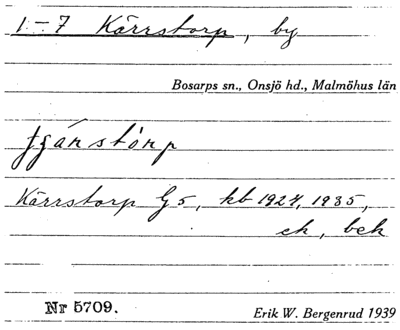 1-7 Kärrstorp, by
Bosarps sn., Onsjö hd., Malmöhus län
Kärrstorp G 5, kb 1927, 1935,
ek, bek
Nr 5709.
Erik W. Bergenrud 1939